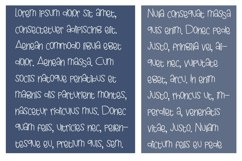 Lorem ipsum dolor sit amet,
consectetuer adipiscing elit.
Aenean commodo ligula eget
dolor. Aenean massa. Cum
sociis natoque penatibus et
magnis dis parturient montes,
nascetur ridiculus mus. Donec
quam felis, ultricies nec, pellen-
tesque eu, pretium quis, sem.
Nulla consequat massa
quis enim. Donec pede
justo, fringilla vel, ali-
quet nec, vulputate
eget, arcu. In enim
justo, rhoncus ut, im-
perdiet a, venenatis
vitae, justo. Nullam
dictum felis eu pede